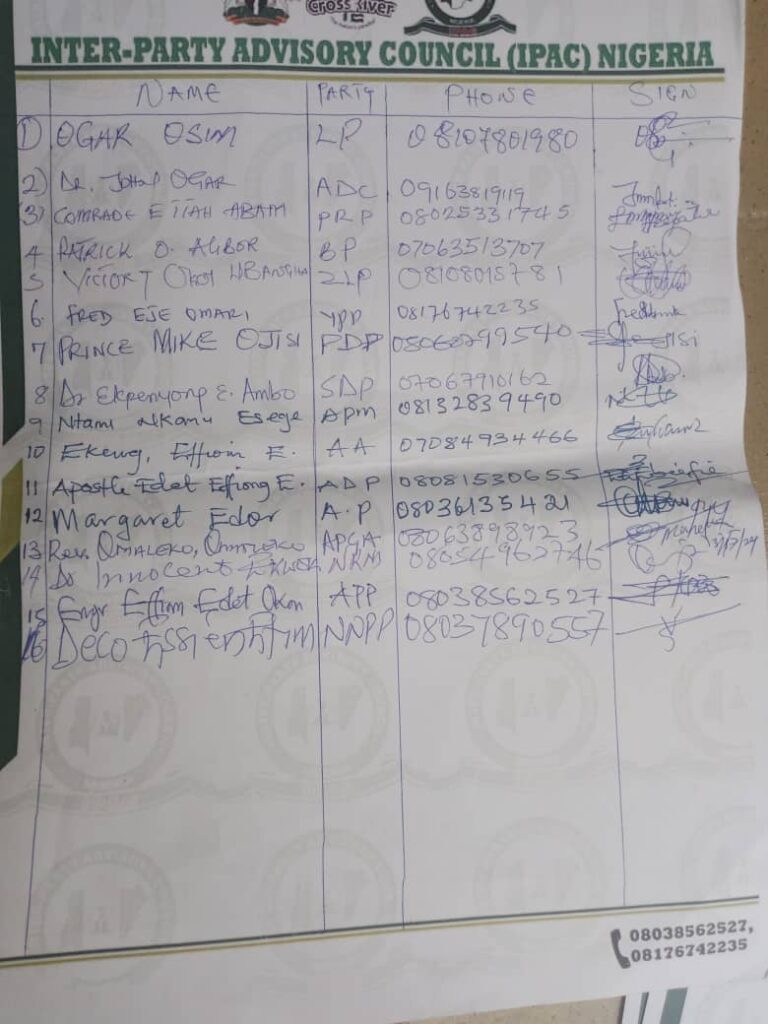 Cross River
INTER-PARTY ADVISORY COUNCIL (IPAC) NIGERIA
NAME PARTY PHONE SIGN
1) OGAR OSIM LP 08107801980
2) Dr. JOHN OGAR ADC 09163819119
3) COMRADE ETTAH ABAM PRP 08025331745
4 PATRICK O. ALIBOR BP 07063513707
5 VICTORY OKOI ZLP 08108015781
6. FRED EJE OMARI YPP 08176742235
7 PRINCE MIKE OJISI PDP
8 Dr Ekpenyong E. Ambo SDP 07067910162
9 Ntami Nkanu Esege APM 08132839490
10 Ekeng, Effiom E. AA 07084934466
11 Apostle Edet Effiong E. ADP 08081530655
12 Margaret Edor A.P 08036135421
13 Rev. OMALEKO, APGA 08063898923
14 Dr Innocent NRM 08054962746
15 Engr Effiom Edet Okon APP 08038562527
16 Deco NNPP 08037890557
08038562527,
08176742235